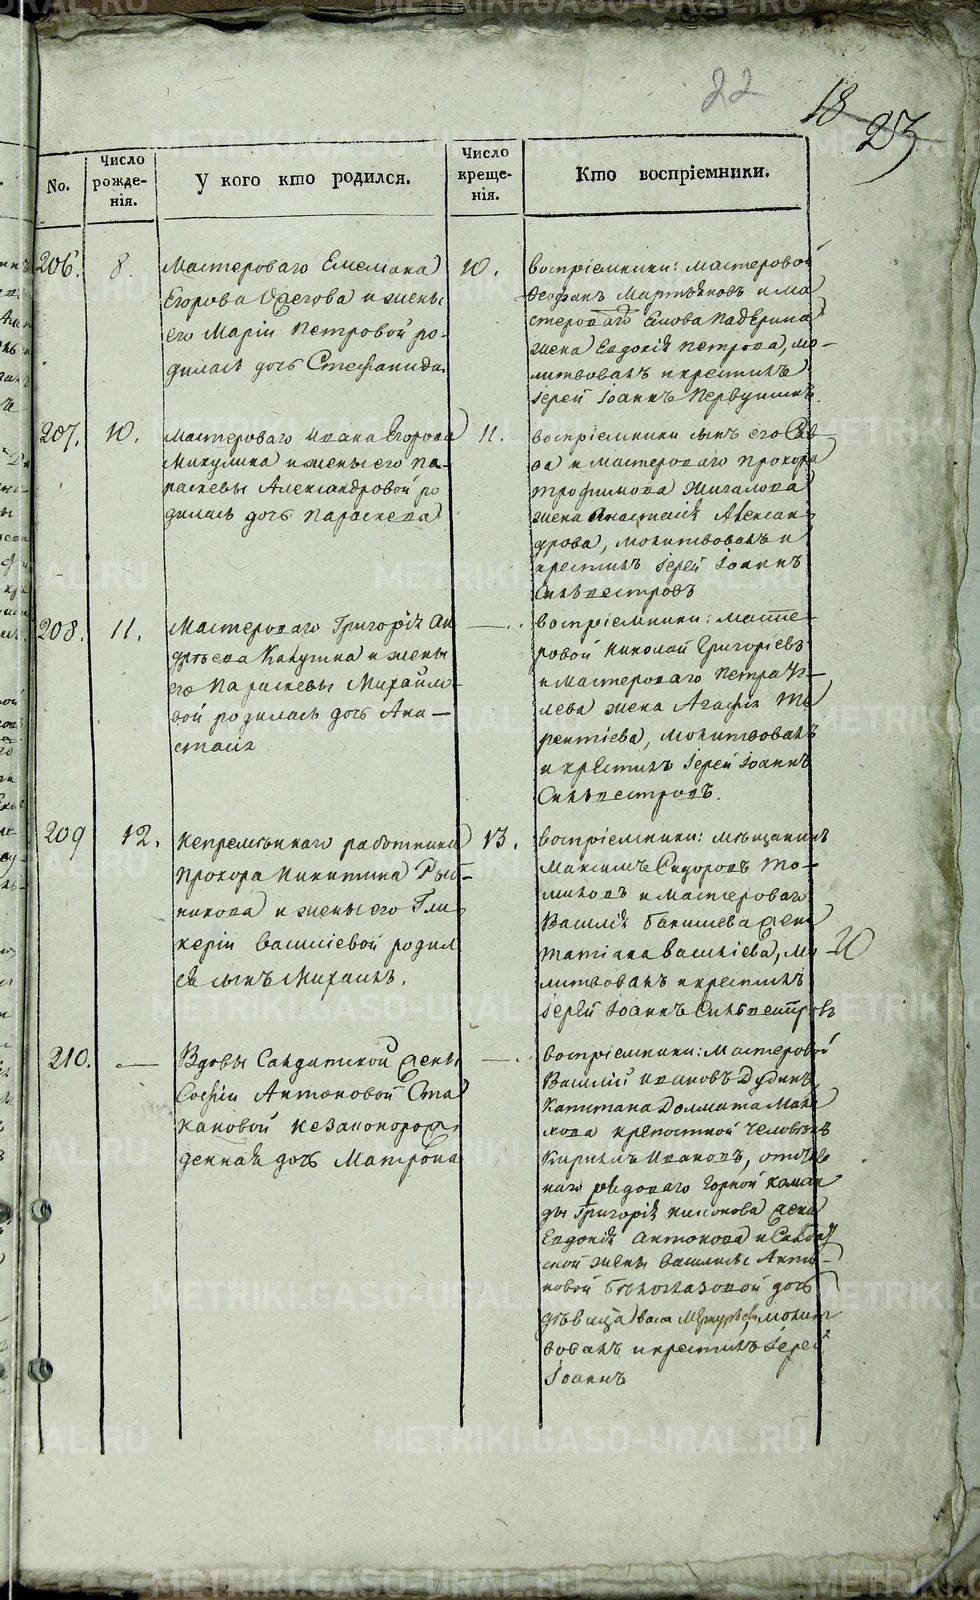 22
18
23
No.
Число
рожде-
нія.
У кого кто родился.
Число
креще-
нія.
Кто воспріемники.
206.
8.
Мастероваго Емеліана
Егорова и жены
его Маріи Петровой ро-
дилась дочь Стефанида
10.
воспріемники: мастеровой
Феофанъ Мартьяновъ и ма
стероваго
жена Евдокія Петрова, мо-
литвовалъ и крестилъ
Іерей Іоаннъ Первушинъ.
207.
10.
Мастероваго Ивана Егорова
Микулина и жены его Па-
раскевы Александровой ро
дилась дочь Параскева
11.
воспріемники сынъ его Сав-
ва и мастероваго Прохора
Трофимова Жигалова
жена Анастасія Алексан
дрова, молитвовалъ и
крестилъ Іерей Іоаннъ
Сильвестровъ
208.
11.
Мастероваго Григорія Ан
дреева и жены
его Параскевы Михайло-
вой родилась дочь Ана-
стасія
—.
воспріемники: масте-
ровой Николай Григоріевъ
и мастероваго Петра
жена Агафія Те
рентіева, молитвовалъ
и крестилъ Іерей Іоаннъ
Сильвестровъ.
209
12.
Непременнаго работника
Прохора Никитина Рыб-
никова и жены его Гли
керіи Васильевой родил
ся сынъ Михаилъ.
13.
воспріемники: мещанинъ
Максимъ Сидоровъ То-
миловъ и мастероваго
Василія жена
Татіана Васильева, мо
литвовалъ и крестилъ
Іерей Іоаннъ Сильвестровъ
210.
—
Вдовы Салдатской жены
Софіи Антоновой Ста
кановой незаконорож
денная дочь Матрона
—.
воспріемники: мастеровой
Василій Ивановъ Дудинъ,
Капитана Долмата
крепостной человекъ
Кирилъ Ивановъ,
рядоваго Горной коман
ды Григорія жена
Евдокія Антонова и Салдат
ской жены Василисы Анто-
новой Белоглазовой дочь
девица молит
вовалъ и крестилъ Іерей
Іоаннъ
METRIKI.GASO-URAL.RU